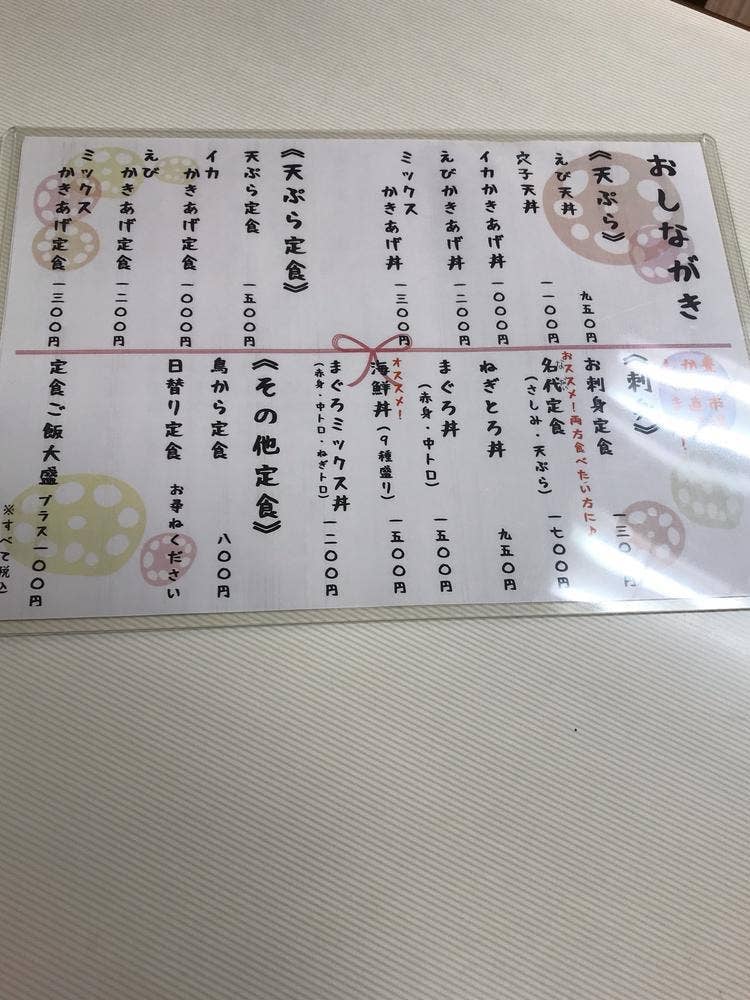 おしながき
《天ぷら》
えび天丼 九五〇円
穴子天丼 一一〇〇円
イカかきあげ丼 一〇〇〇円
えびかきあげ丼 一二〇〇円
ミックス
かきあげ丼 一三〇〇円
《天ぷら定食》
天ぷら定食 一五〇〇円
イカ
かきあげ定食 一〇〇〇円
えび
かきあげ定食 一二〇〇円
ミックス
かきあげ定食 一三〇〇円
お刺身定食 一三〇円
おススメ!両方食べたい方に♪
名代定食
(さしみ・天ぷら) 一七〇〇円
ねぎとろ丼 九五〇円
まぐろ丼
(赤身・中トロ) 一五〇〇円
オススメ!
海鮮丼(9種盛り) 一五〇〇円
まぐろミックス丼
(赤身・中トロ・ねぎトロ) 一二〇〇円
《その他定食》
鳥から定食 八〇〇円
日替り定食 お尋ねください
定食ご飯大盛 プラス一〇〇円
※すべて税込